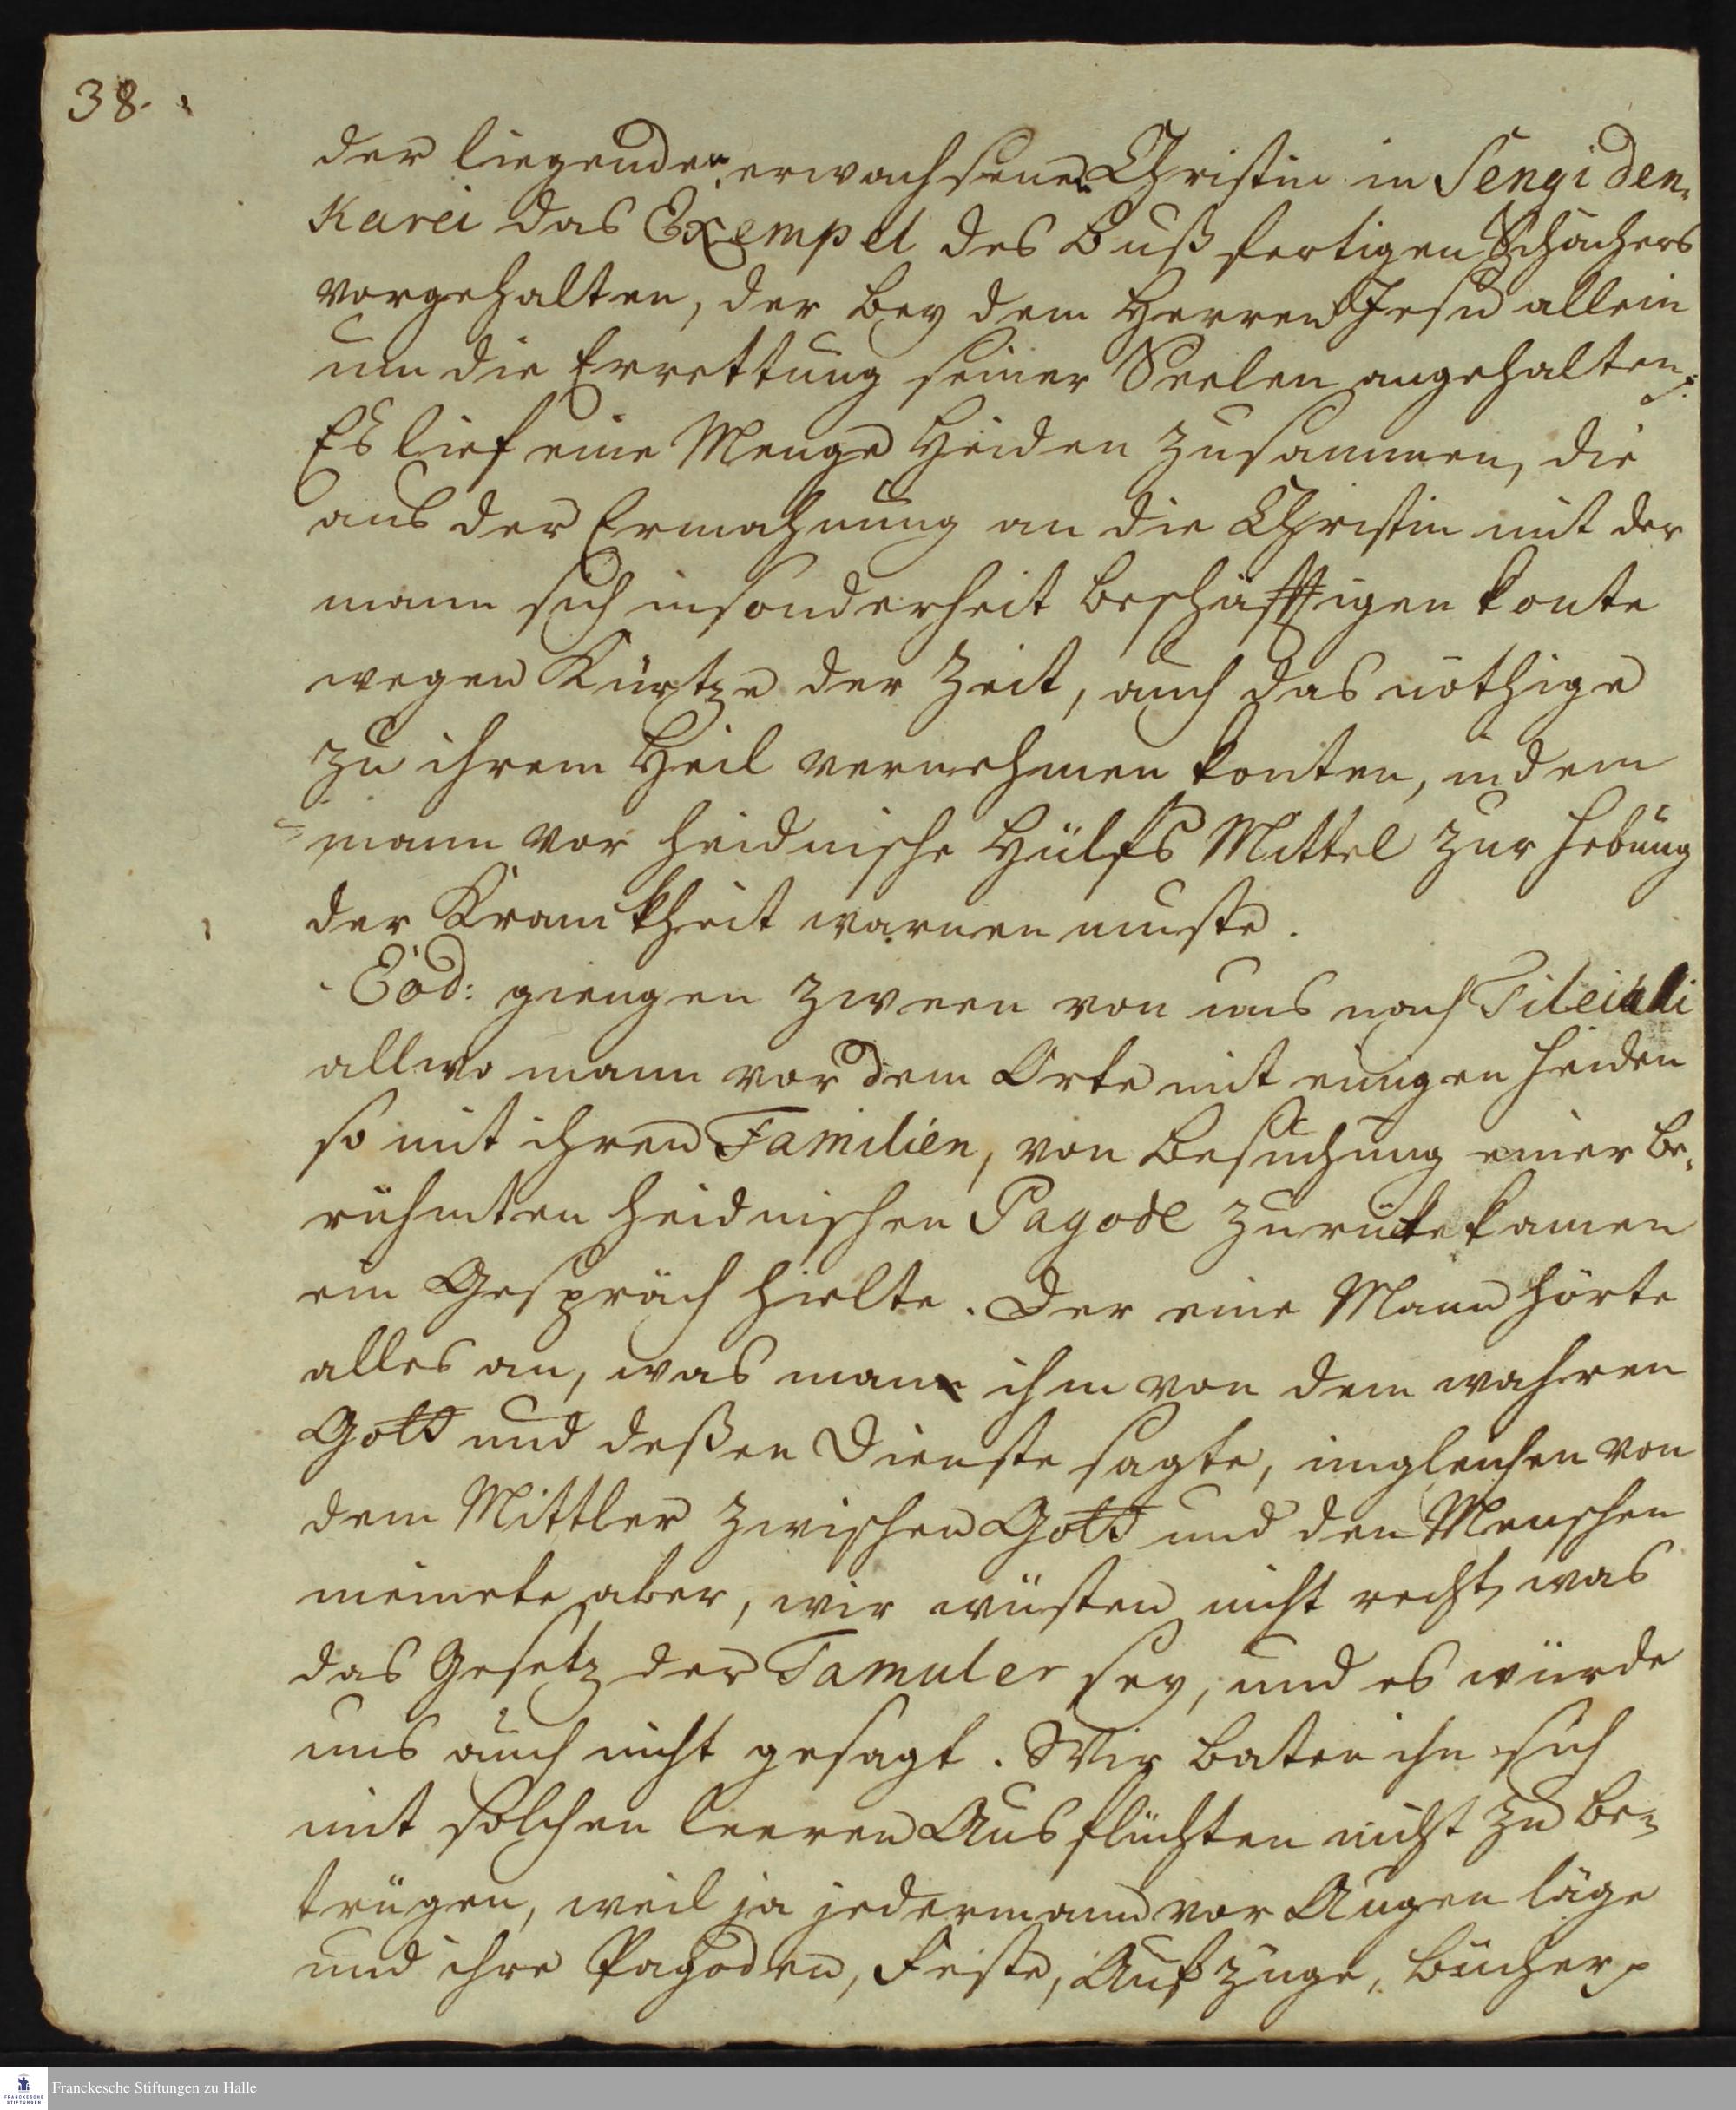 38.
der liegenden erwachsenen Christin in Sengiden-
Karei das Exempel des bußfertigen Schächers
vorgehalten, der bey dem Herren Jesu allein
um die Errettung seiner Seelen angehalten.
Es lief eine Menge Heiden zusammen, die
aus der Ermahnung an die Christin mit der
mann sich insonderheit beschäfftigen konte
wegen Kürtze der Zeit, auch das nöthige
zu ihrem Heil vernehmen konten, indem
mann vor heidnische Hülfs Mittel zur Hebung
der Kranckheit warnen muste.
Eod: giengen zween von uns nach Tileiali
allwo mann vor dem Orte mit einigen Heiden
so mit ihren Familien, von Besuchung einer be-
rühmten heidnischen Pagode zurückekamen
ein Gespräch hielte. Der eine Mann hörte
alles an, was man ihm von dem wahren
Gott und deßen Dienste sagte, imgleichen von
dem Mittler zwischen Gott und den Menschen
meinete aber, wir wüsten nicht recht, was
das Gesetz der Tamuler sey, und es würde
uns auch nicht gesagt. Wir baten ihn sich
mit solchen leeren Ausflüchten nicht zu be-
trügen, weil ja jedermann vor Augen läge
und ihre Pagoden, Feste, Aufzüge, Bücher
Franckesche Stiftungen zu Halle
FRANCKESCHE
STIFTUNGEN